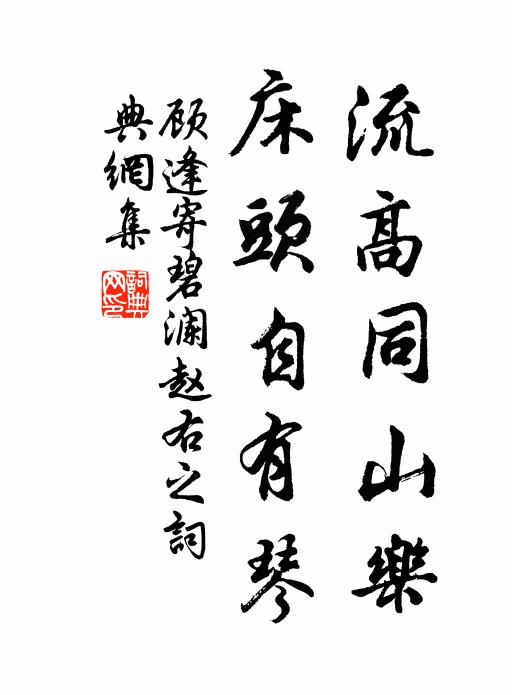 流高同山樂
床頭自有琴
顾逢寄碧澜赵右之詞
典網集
詞典網印